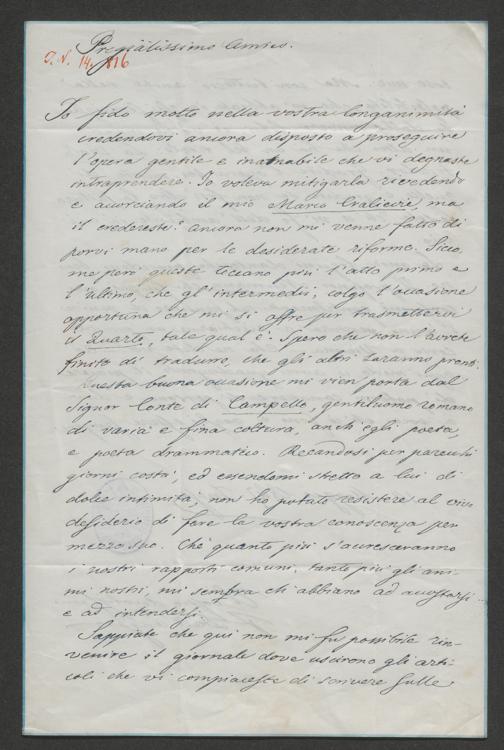 Pregiatissimo Amico.
I. N. 14.816
Io fido molto nella vostra longanimità
credendovi ancora disposto a proseguire
l'opera gentile e inamabile che vi degnaste
intraprendere. Io voleva mitigarla rivedendo
e accorciando il mio Marco Cralievic, ma
il credereste? ancora non mi venne fatto di
porvi mano per le desiderate riforme. Sicco,
me però queste toccano più l'atto primo e
l'ultimo, che gl'intermedii, colgo l'occasione
opportuna che mi si offre per trasmettervi
il Quarto, tale qual è. Spero che non l'avrete
finito di tradurre, che gli altri saranno pronti.
Questa buona occasione mi vien porta dal
Signor Conte di Campello, gentiluomo romano
di varia e fina coltura, anch'egli poeta,
e poeta drammatico. Recandosi per parecchi
giorni costà, ed essendomi stretto a lui di
dolce intimità, non ho potuto resistere al vivo
desiderio di fare la vostra conoscenza per
mezzo suo. Chè quanto più s'accresceranno
i nostri rapporti comuni, tanto più gli ani-
mi nostri, mi sembra ch'abbiano ad accostarsi
e ad intendersi.
Sappiate che qui non mi fu possibile rin-
venire il giornale dove uscirono gli arti-
coli che vi compiaceste di scrivere sulle